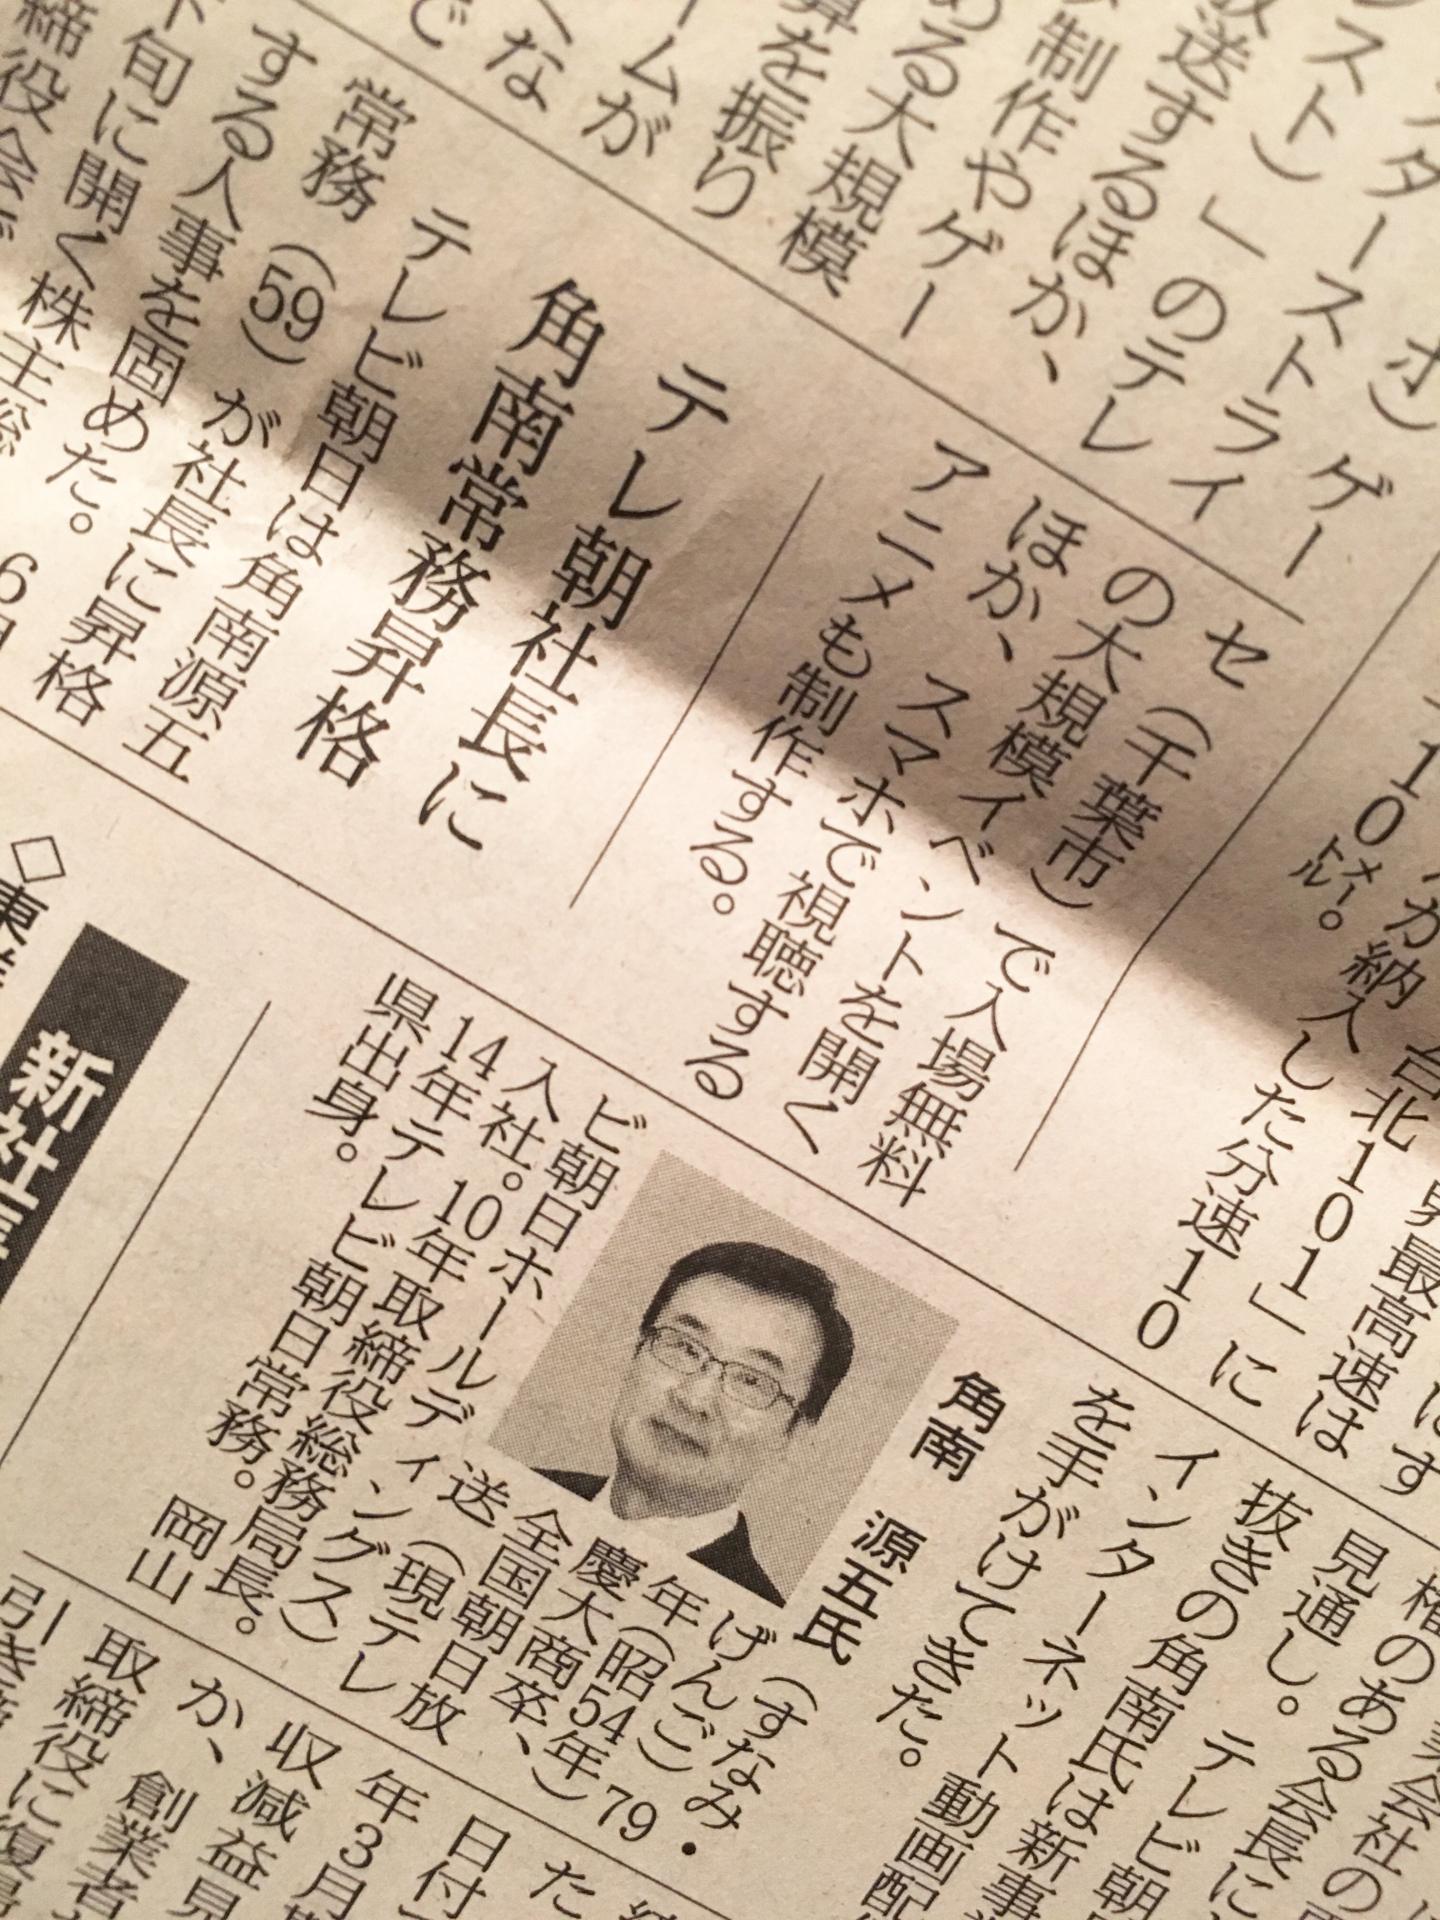 ターストライ
スト）」のテレ
放送するほか、
制作やゲー
める大規模
算を振り
ームが
くな
で
１０㍍。
が納入した分速１０
台北１０１」に
最高速は
セ（千葉市）で入場無料
の大規模イベントを開く
ほか、スマホで視聴する
アニメも制作する。
テレ朝社長に
角南常務昇格
テレビ朝日は角南源五
常務（59）が社長に昇格
する人事を固めた。6月
下旬に開く株主総
締役会で
権のある会長に
見通し。テレビ朝
抜きの角南氏は新事
インターネット動画配
を手がけてきた。
角南 源五氏
（すなみ・
げんご）79
年（昭54年）
慶大商卒、
全国朝日放
送（現テレ
ビ朝日ホールディングス）
入社。10年取締役総務局長。
14年テレビ朝日常務。岡山
県出身。
新社長
た
日付
年3月
収減益見
か、創業者
取締役に復
引き